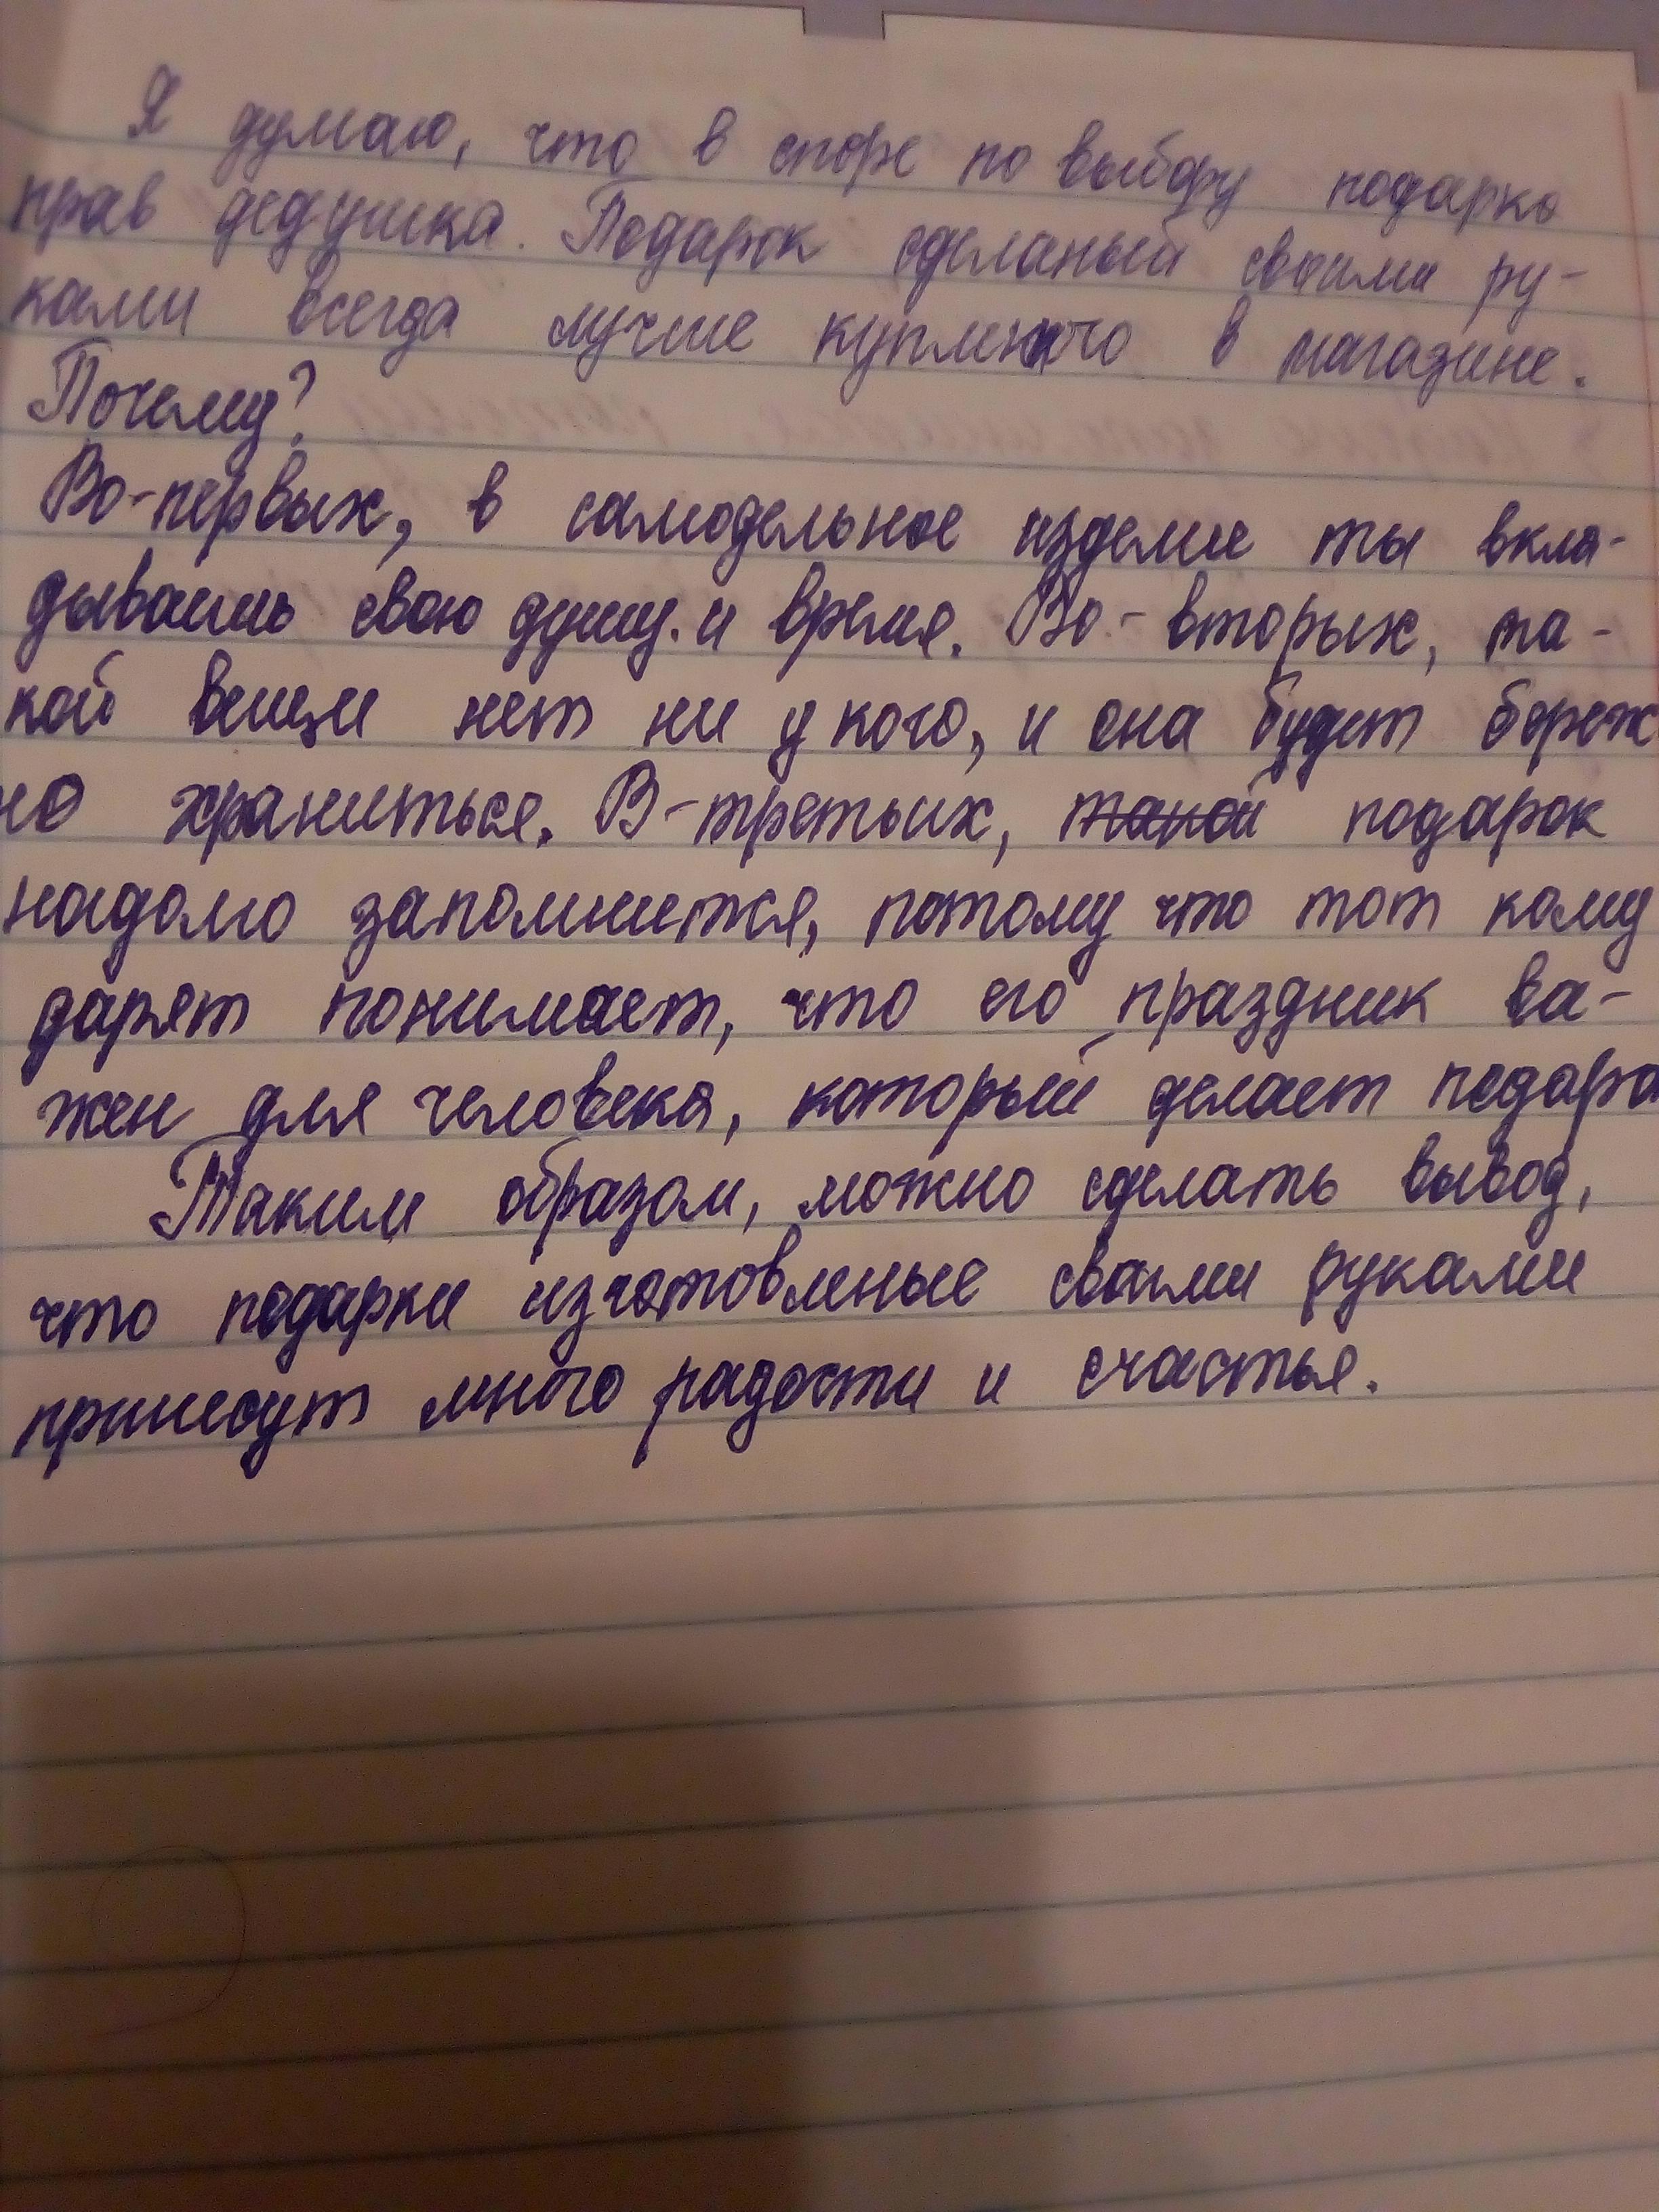 Я думаю, что в споре по выбору подарка
прав дедушка. Подарок сделаный своими ру-
ками всегда лучше купленого в магазине.
Почему?
Во-первых, в самодельное изделие ты вкла-
дываешь свою душу и время. Во-вторых, та-
кой вещи нет ни у кого, и она будет береж
но храниться. В-третьих, такой подарок
надолго запомнится, потому что тот кому
дарят понимает, что его праздник ва-
жен для человека, который делает подаро
Таким образом, можно сделать вывод,
что подарки изготовленые своими руками
принесут много радости и счастья.